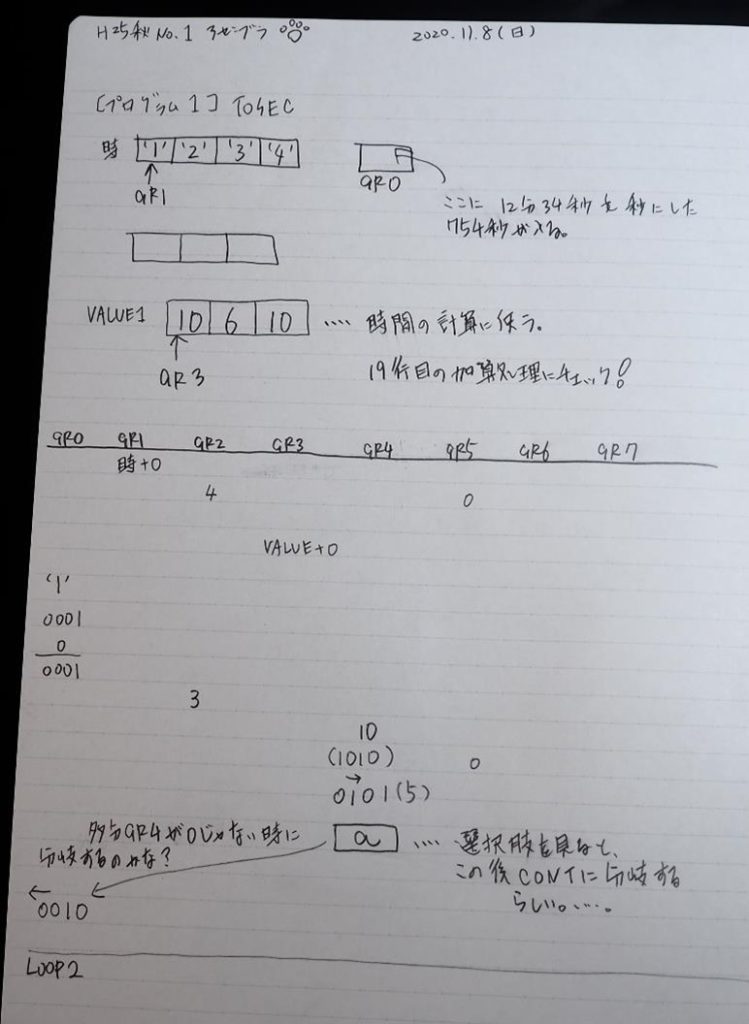 H25秋No.1 3ゼブラ
2020.11.8(日)
[プログラム1] TOSEC
時 '1' '2' '3' '4'
GR1
GR0
ここに 12分34秒を秒にした
754秒が入る。
VALUE1 10 6 10 ‥‥ 時間の計算に使う。
GR3
19行目の加算処理にチェック!
GR0 GR1 GR2 GR3 GR4 GR5 GR6 GR7
時+0
4 0
VALUE+0
'1'
0001
0
0001
3
10
(1010) 0
0101(5)
多分GR4が0じゃない時に
分岐するのかな?
a ‥‥ 選択肢を見ると、
この後CONTに分岐する
らしい。‥‥。
0010
LOOP2